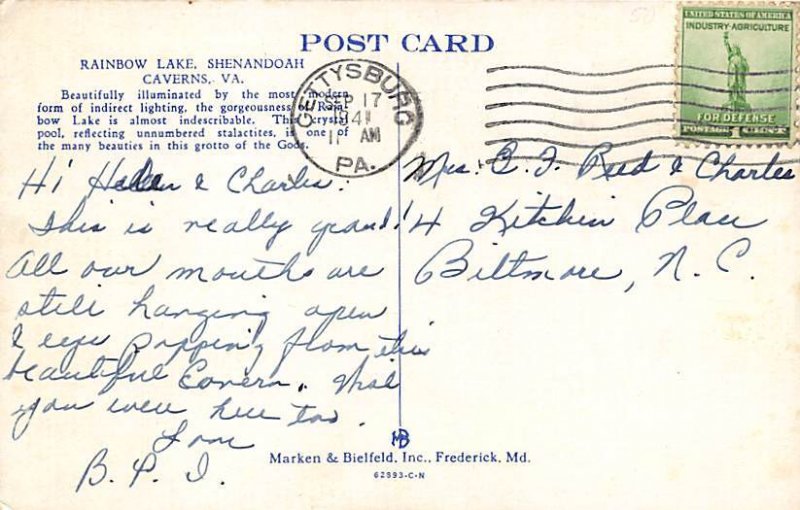 POST CARD
RAINBOW LAKE, SHENANDOAH
CAVERNS, VA.
Beautifully illuminated by the most modern
form of indirect lighting, the gorgeousness of Rain-
bow Lake is almost indescribable. This crystal
pool, reflecting unnumbered stalactites, is one of
the many beauties in this grotto of the Gods.
GETTYSBURG
SEP 17
11 AM
PA.
UNITED STATES OF AMERICA
INDUSTRY-AGRICULTURE
FOR DEFENSE
POSTAGE 1 CENT
Hi Helen & Charles:
This is really grand!
All our mouths are
still hanging open
& eyes popping from this
beautiful Cavern. Wish
you were here too.
Love
B. P. I.
Mrs. G. F. Reed & Charles
4 Kitchin Place
Biltmore, N. C.
MB
Marken & Bielfeld, Inc., Frederick, Md.
62993-C-N